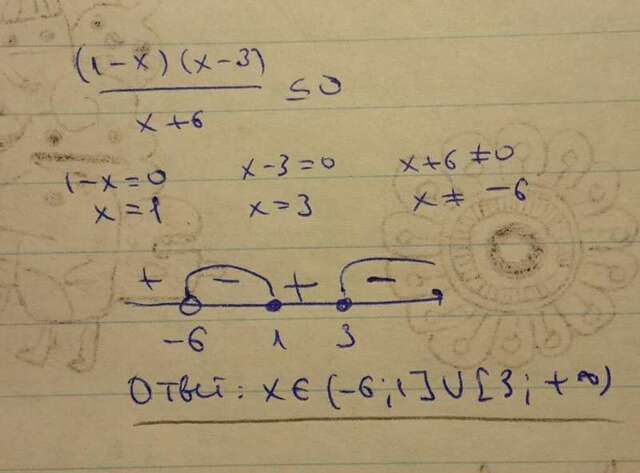 (1-x)(x-3)
x+6
≤0
1-x=0 x-3=0 x+6≠0
x=1 x=3 x≠-6
+ - + -
-6 1 3
Ответ: x∈(-6;1]∪[3;+∞)